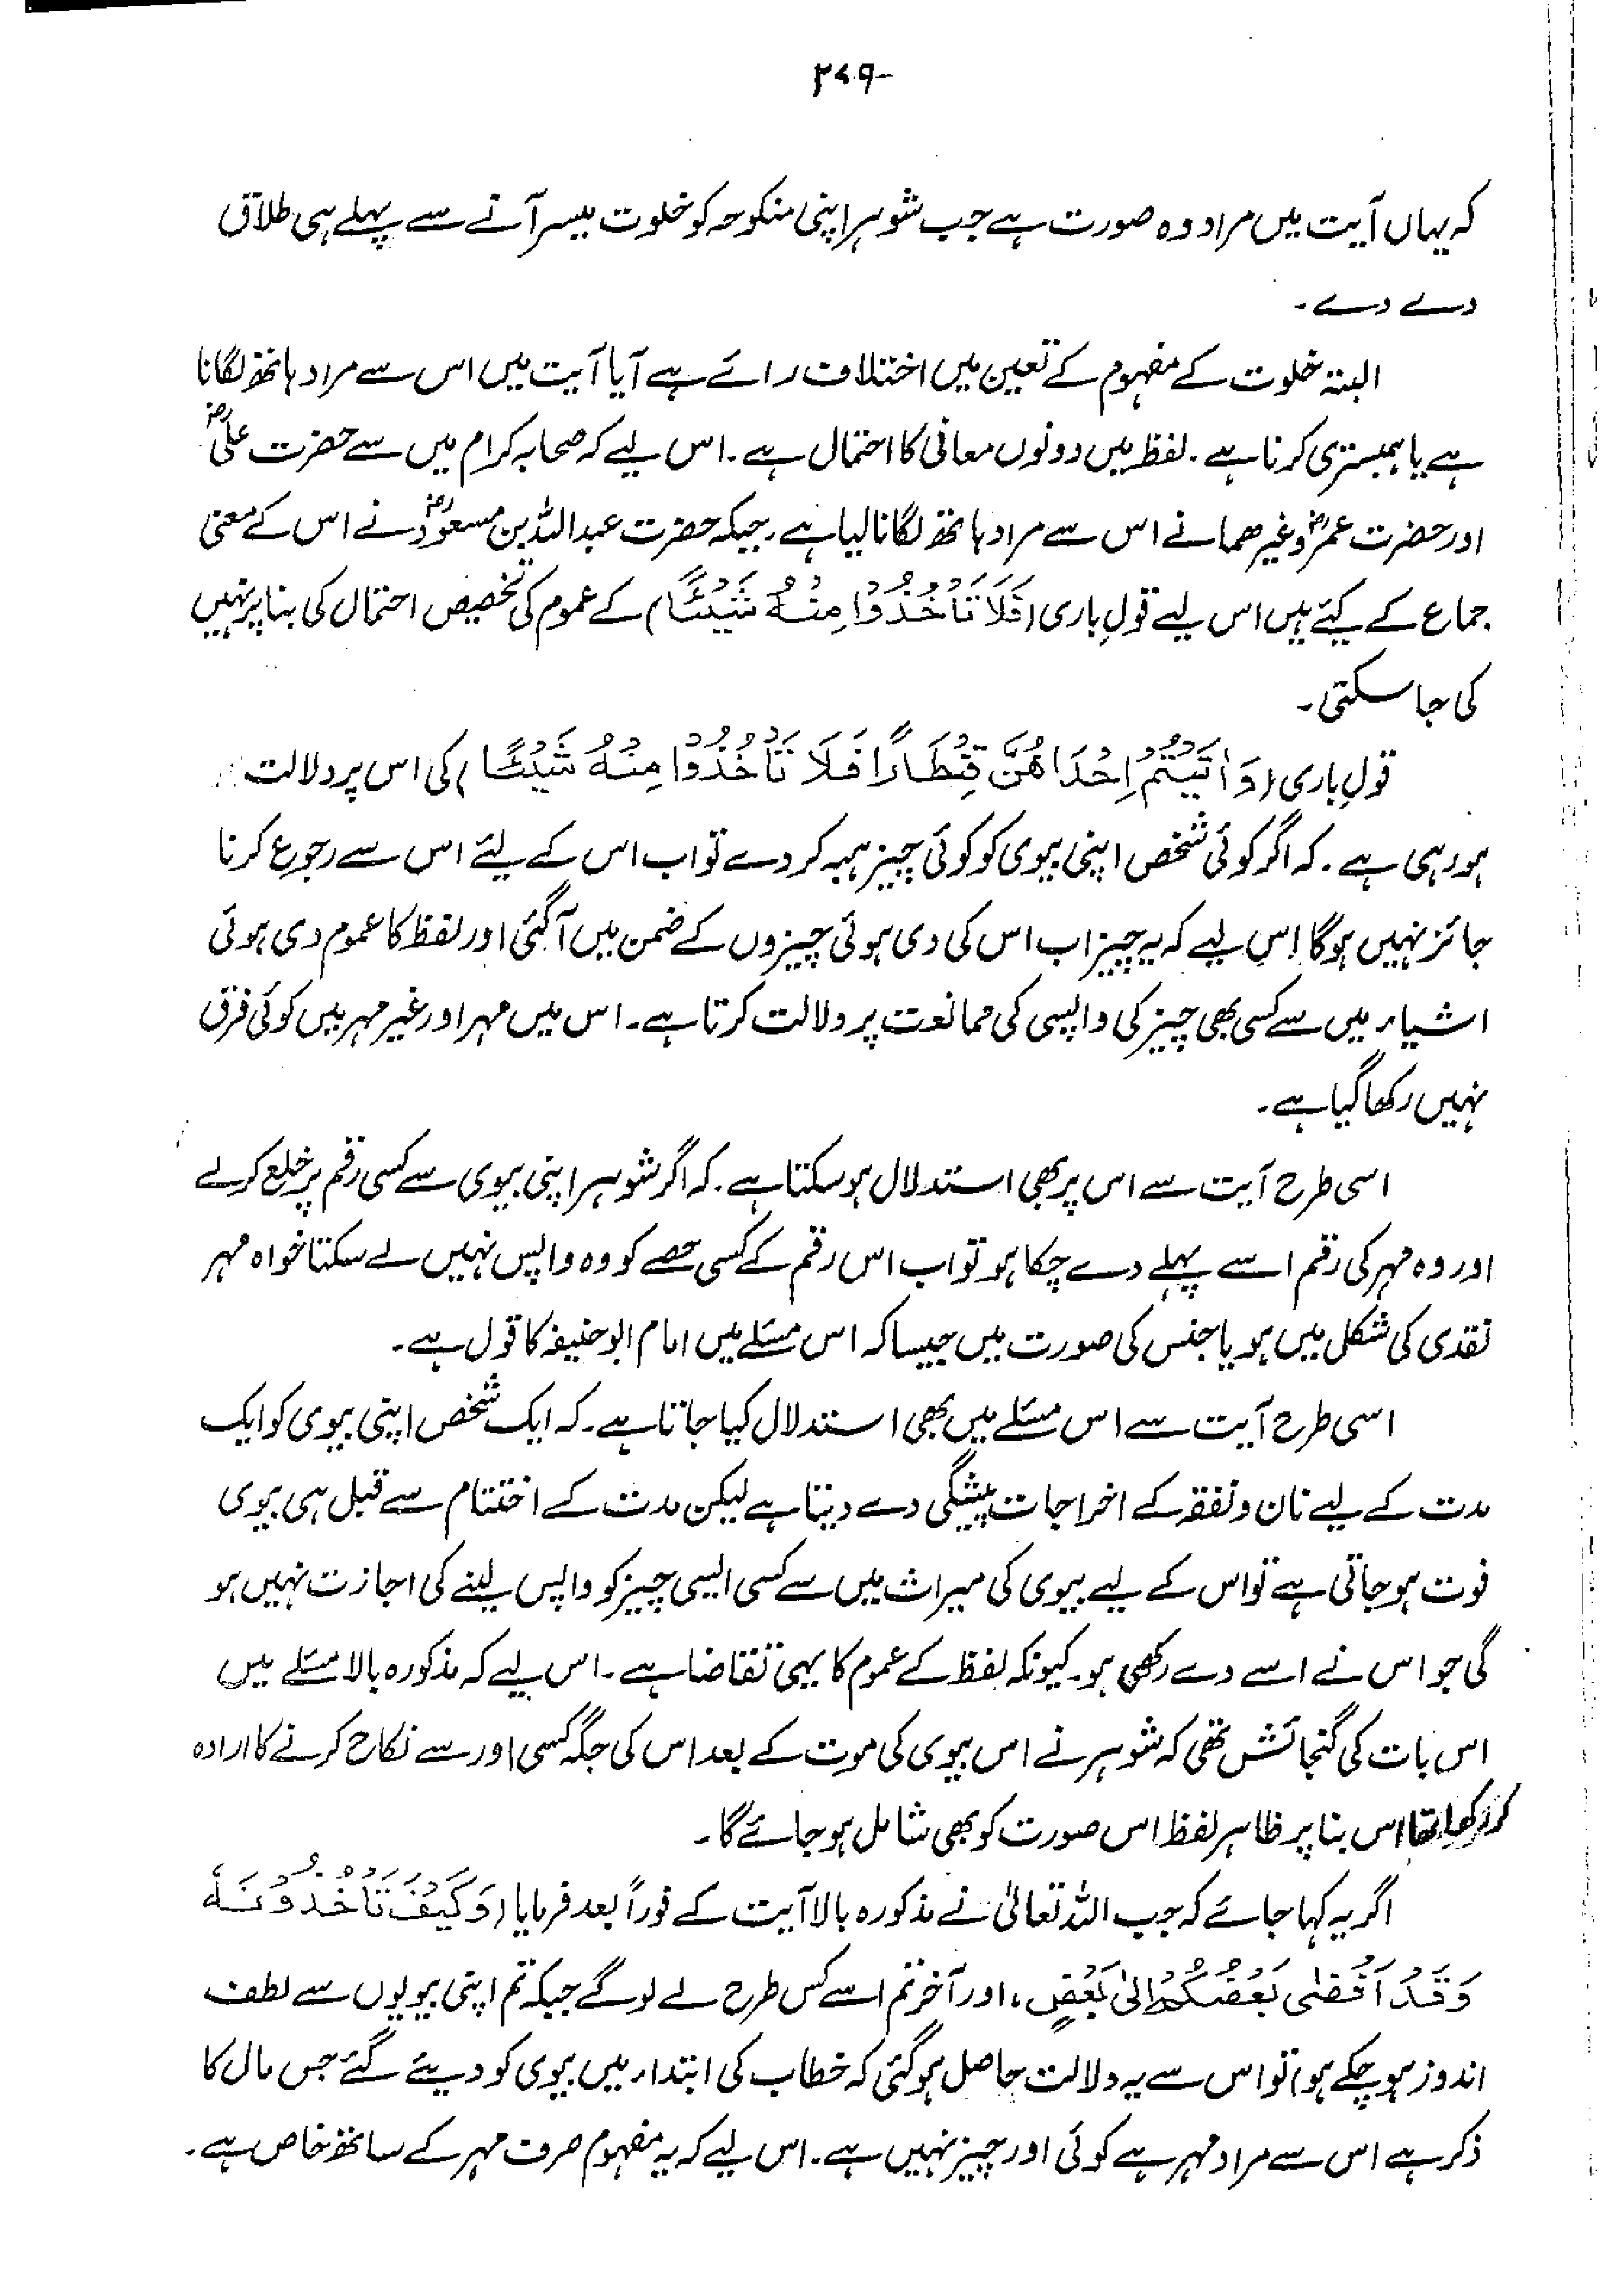 ۲۷۹-
کہ یہاں آیت میں مراد وہ صورت ہے جب شوہر اپنی منکوحہ کو خلوت میسر آنے سے پہلے ہی طلاق
دے دے۔
البتہ خلوت کے مفہوم کے تعین میں اختلاف رائے ہے آیا آیت میں اس سے مراد ہاتھ لگانا
ہے یا ہمبستری کرنا ہے۔ لفظ میں دونوں معانی کا احتمال ہے۔ اس لیے کہ صحابہ کرام میں سے حضرت علیؓ
اور حضرت عمرؓ وغیرھما نے اس سے مراد ہاتھ لگانا لیا ہے۔ جبکہ حضرت عبداللہ بن مسعودؓ نے اس کے معنی
جماع کے کیئے ہیں اس لیے قولِ باری (فَلَا تَأْخُذُوْا مِنْهُ شَيْئًا) کے عموم کی تخصیص احتمال کی بنا پر نہیں
کی جا سکتی۔
قولِ باری (وَاٰتَيْتُمْ اِحْدَاهُنَّ قِنْطَارًا فَلَا تَأْخُذُوْا مِنْهُ شَيْئًا) کی اس پر دلالت
ہو رہی ہے۔ کہ اگر کوئی شخص اپنی بیوی کو کوئی چیز ہبہ کر دے تو اب اس کے لیئے اس سے رجوع کرنا
جائز نہیں ہوگا اس لیے کہ یہ چیز اب اس کی دی ہوئی چیزوں کے ضمن میں آگئی اور لفظ کا عموم دی ہوئی
اشیاء میں سے کسی بھی چیز کی واپسی کی ممانعت پر دلالت کرتا ہے۔ اس میں مہر اور غیر مہر میں کوئی فرق
نہیں رکھا گیا ہے۔
اسی طرح آیت سے اس پر بھی استدلال ہو سکتا ہے۔ کہ اگر شوہر اپنی بیوی سے کسی رقم پر خلع کرلے
اور وہ مہر کی رقم اسے پہلے دے چکا ہو تو اب اس رقم کے کسی حصے کو وہ واپس نہیں لے سکتا خواہ مہر
نقدی کی شکل میں ہو یا جنس کی صورت میں جیسا کہ اس مسئلے میں امام ابو حنیفہ کا قول ہے۔
اسی طرح آیت سے اس مسئلے میں بھی استدلال کیا جاتا ہے۔ کہ ایک شخص اپنی بیوی کو ایک
مدت کے لیے نان و نفقہ کے اخراجات پیشگی دے دیتا ہے لیکن مدت کے اختتام سے قبل ہی بیوی
فوت ہو جاتی ہے تو اس کے لیے بیوی کی میراث میں سے کسی ایسی چیز کو واپس لینے کی اجازت نہیں ہو
گی جو اس نے اسے دے رکھی ہو۔ کیونکہ لفظ کے عموم کا یہی تقاضا ہے۔ اس لیے کہ مذکورہ بالا مسئلے میں
اس بات کی گنجائش تھی کہ شوہر نے اس بیوی کی موت کے بعد اس کی جگہ کسی اور سے نکاح کرنے کا ارادہ
کر رکھا تھا اس بنا پر ظاہر لفظ اس صورت کو بھی شامل ہو جائے گا۔
اگر یہ کہا جائے کہ جب اللہ تعالیٰ نے مذکورہ بالا آیت کے فوراً بعد فرمایا (وَكَيْفَ تَأْخُذُوْنَهٗ
وَقَدْ اَفْضٰى بَعْضُكُمْ اِلٰى بَعْضٍ، اور آخر تم اسے کس طرح لے لو گے جبکہ تم اپنی بیویوں سے لطف
اندوز ہو چکے ہو) تو اس سے یہ دلالت حاصل ہو گئی کہ خطاب کی ابتداء میں بیوی کو دیئے گئے جس مال کا
ذکر ہے اس سے مراد مہر ہے کوئی اور چیز نہیں ہے۔ اس لیے کہ یہ مفہوم صرف مہر کے ساتھ خاص ہے۔